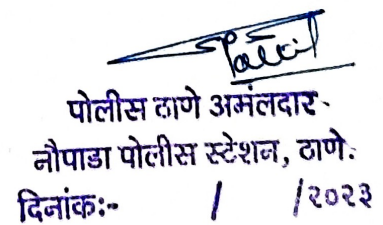 पोलीस ठाणे अमंलदार-
नौपाडा पोलीस स्टेशन, ठाणे.
दिनांक:- / /२०२३